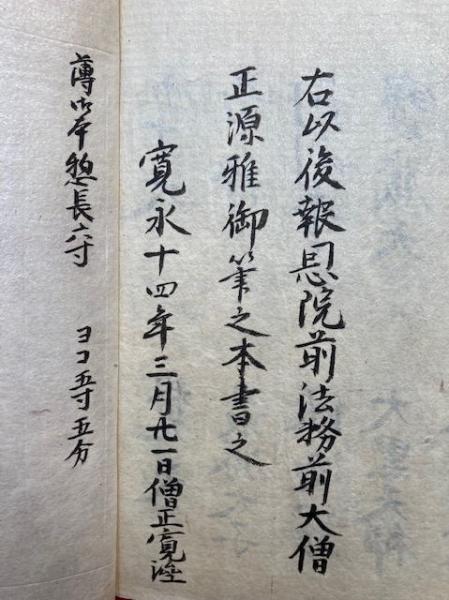 右以後報恩院前法務前大僧
正源雅御筆之本書之
寛永十四年三月廿一日僧正寛済
御本惣長六寸　ヨコ五寸五分